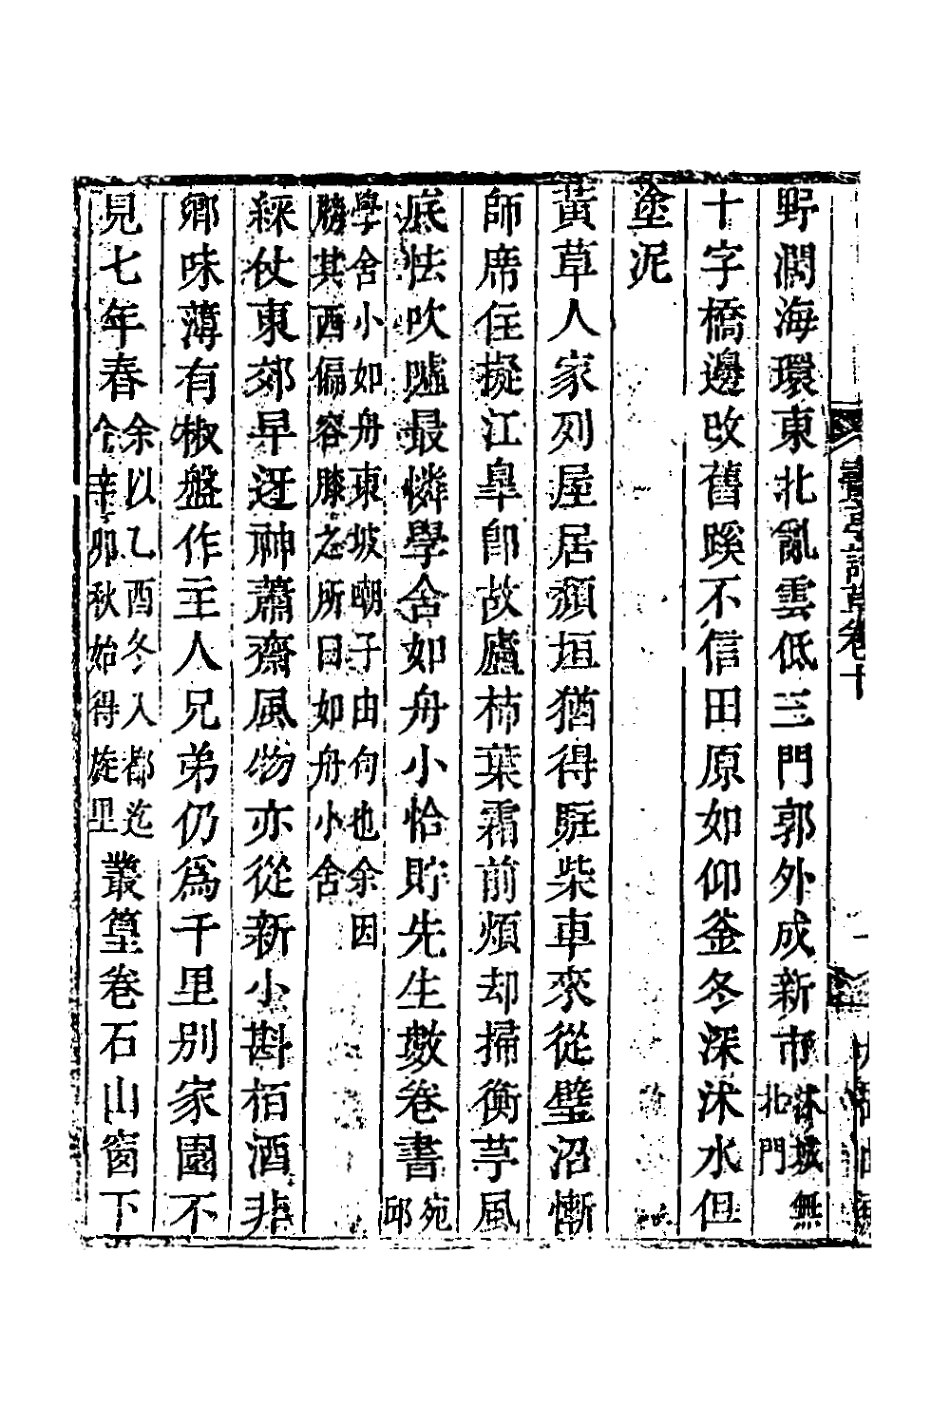 野濶海環東北氤雲低三門郭外成新市沭城無北門
十字橋邊改舊蹊不信田原如仰釜冬深沭水但
塗泥
黃草人家列屋居頽垣猶得駐柴車來從璧沼慚
師席住擬江臯卽故廬柿葉霜前煩却掃衡茅風
底怯吹噓最憐學舍如舟小恰貯先生數卷書宛邱
學舍小如舟東坡嘲子由句也余因
勝其西偏容膝之所曰如舟小舍
綵仗東郊早迓神蕭齋風物亦從新小斟栢酒非
鄉味薄有椒盤作主人兄弟仍爲千里别家園不
見七年春余以乙酉冬入都迄今辛卯秋始得旋里叢篁卷石山窗下
詩草卷十
一